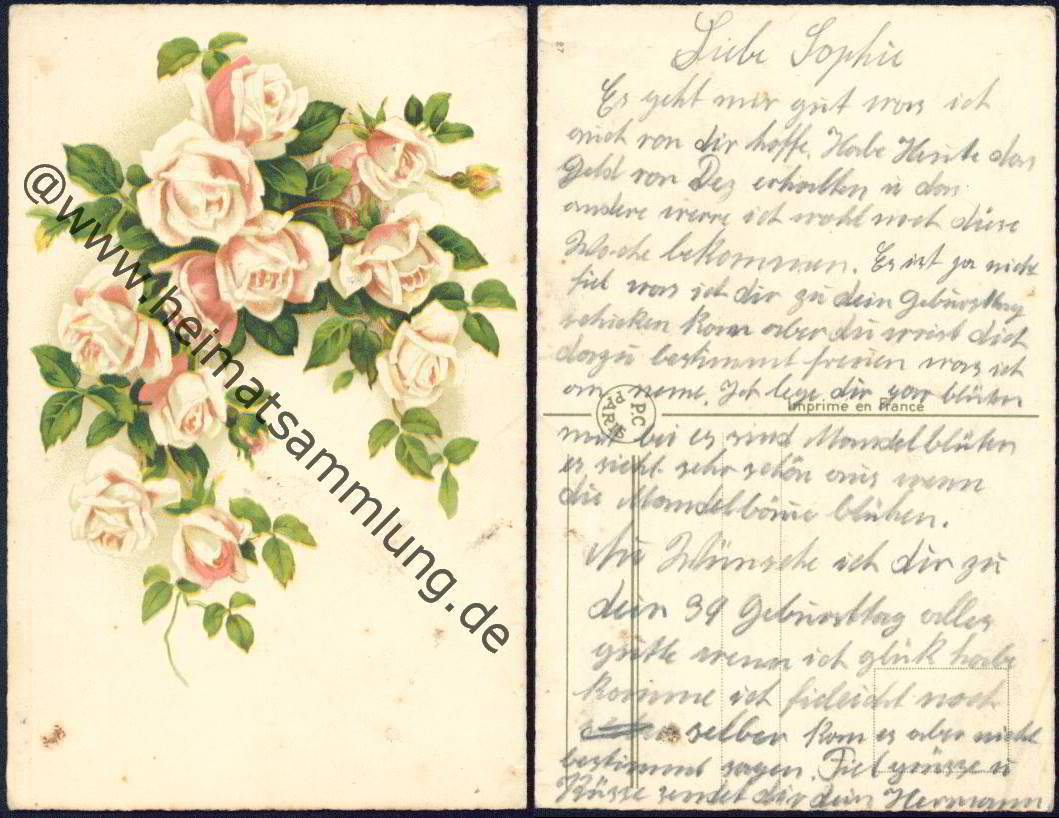 @www.heimatsammlung.de
27
Liebe Sophie
Es geht mir gut was ich
auch von dir hoffe. Habe Heute das
Geld von Dez erhalten u das
andere werre ich wohl noch diese
Woche bekommen. Es ist ja nicht
fiel was ich dir zu dein Gebursttag
schicken kann aber du wirst dich
dazu bestimmt freuen was ich
an neme. Ich lege dir par blüten
Imprime en France
P.C
PARIS
mit bei es sind Mandelblüten
es sieht sehr schön aus wenn
die Mandelböme blühen.
Nu Wünsche ich dir zu
dein 39 Gebursttag alles
gutte wenn ich glük habe
komme ich fieleicht noch
selber kan es aber nicht
bestimmt sagen. Fiel grüsse u
Küsse sendet dir dein Hermann